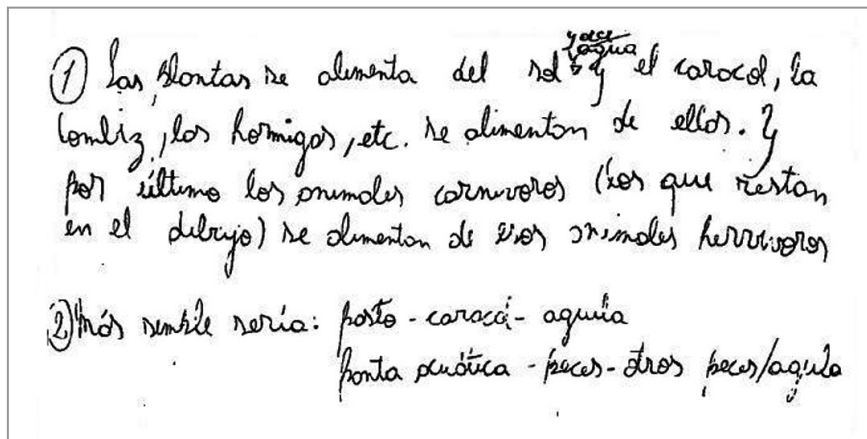 ① Las plantas se alimenta del sol y agua y el caracol, la
lombiz, las hormigas, etc. se alimentan de ellas. Y
por último los animales carnivoros (los que restan
en el dibujo) se alimentan de esos animales herrivoros
② más simple sería: pasto - caracol - aguila
planta acuática - peces - otros peces/aguila